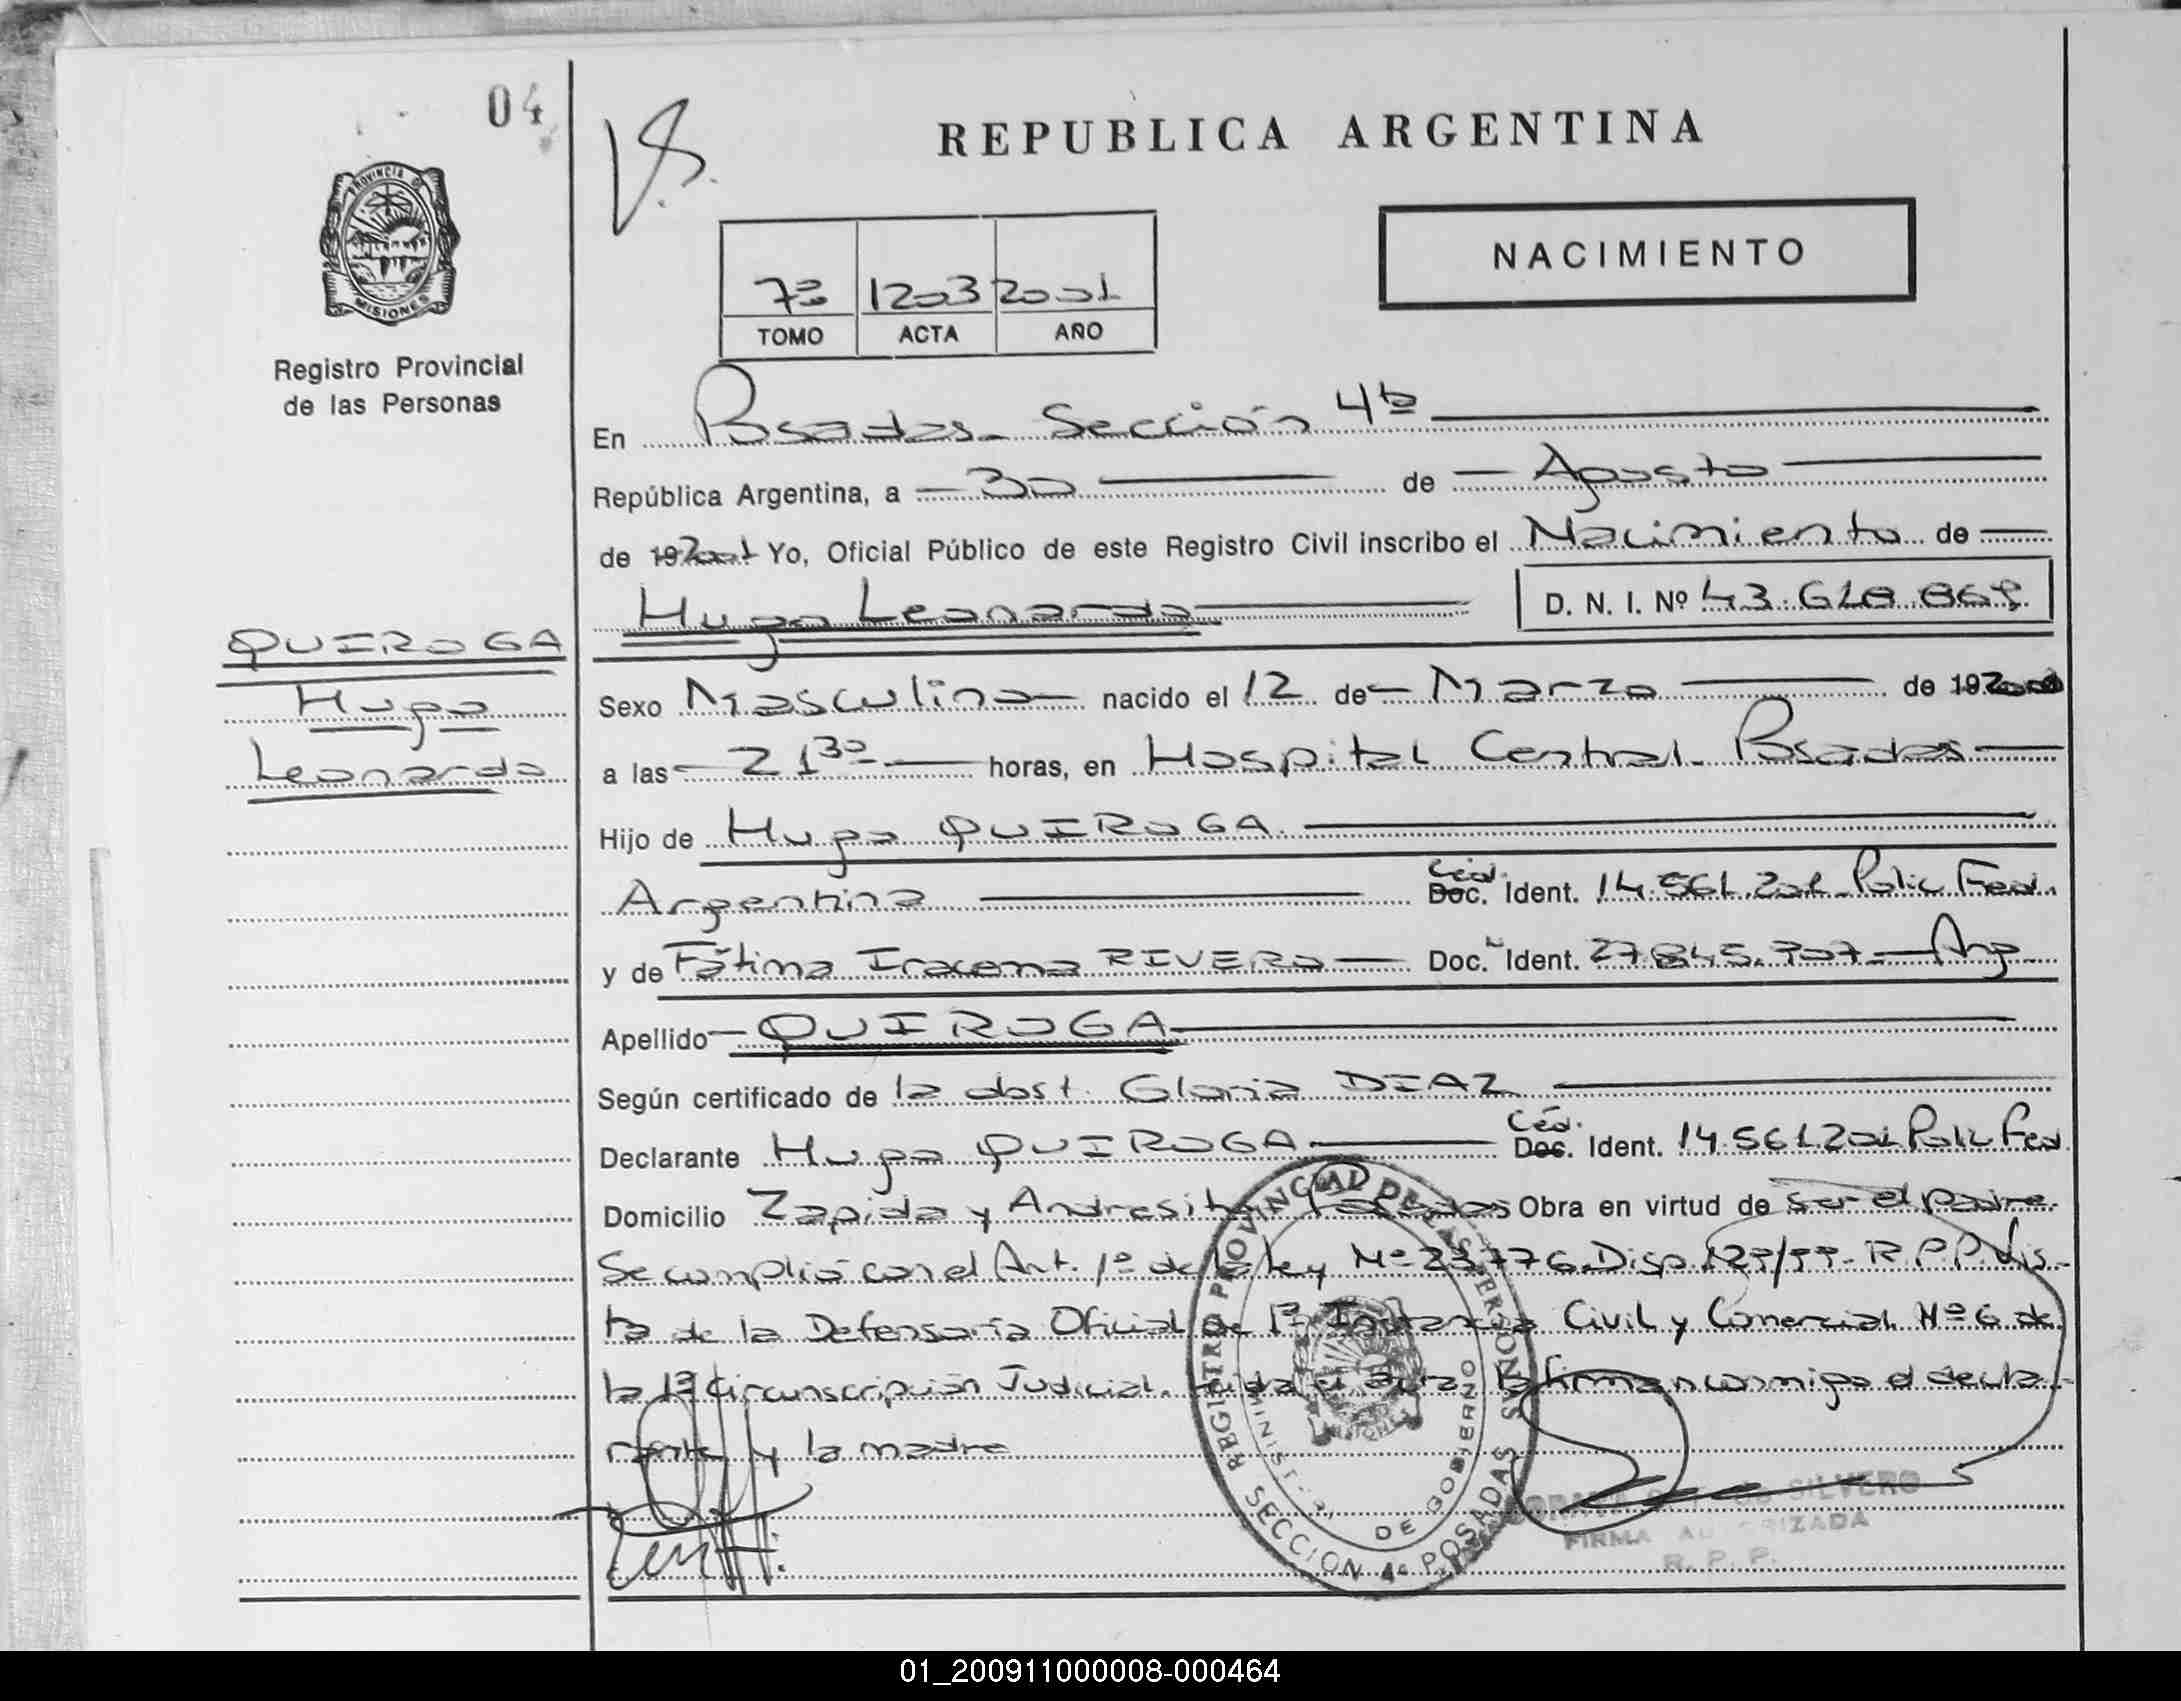 04
REPUBLICA ARGENTINA
NACIMIENTO
PROVINCIA DE MISIONES
Registro Provincial
de las Personas
7º 1203 2001
TOMO ACTA AÑO
En Posadas - Sección 4ta
República Argentina, a 30 de Agosto
de 192001 Yo, Oficial Público de este Registro Civil inscribo el Nacimiento de
Hugo Leonardo D. N. I. Nº 43.618.868
QUIROGA
Hugo
Leonardo
Sexo Masculino nacido el 12 de Marzo de 19
a las 21 30 horas, en Hospital Central - Posadas
Hijo de Hugo QUIROGA
Argentina Céd. Doc. Ident. 14.561.201 Polic Fed.
y de Fátima Iracema RIVERO Doc. Ident. 27.845.907 - Arg
Apellido QUIROGA
Según certificado de la obst. Gloria DIAZ
Declarante Hugo QUIROGA Céd. Doc. Ident. 14.561.201 Polic Fed
Domicilio Zapiola y Andresito Posadas Obra en virtud de ser el padre.
Se cumplió con el Art. 1º de la Ley Nº 23.776 Disp. 129/99 - R.P.P. Vis-
ta de la Defensoría Oficial de 1ª Instancia Civil y Comercial Nº 6 de
la 1ª Circunscripción Judicial. Leída el Acta, la firman conmigo el decla-
rante y la madre
REGISTRO PROVINCIAL DE LAS PERSONAS
MINISTERIO DE GOBIERNO
SECCION 4º POSADAS
SILVERO
FIRMA AUTORIZADA
R. P. P.
01_200911000008-000464